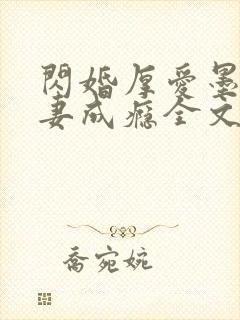 閃婚厚愛墨
妻成癮全文
喬宛婉